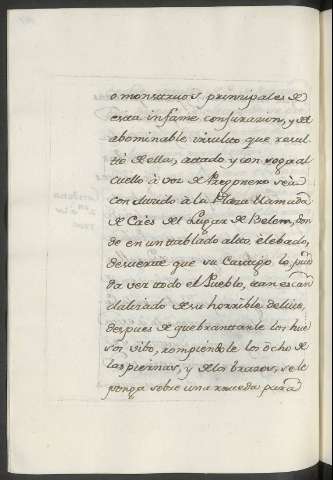 o monstruos principales de
esta infame conjurazon, y del
abominable insulto que resul
tó de ella, atado y con soga al
cuello à voz de Pregonero seia
condusido à la Plaza llamada
de Caès del Lugar de Belem, don
de en un tablado alto, è lebado,
de suerte que su Castigo lo pue
da ver todo el Pueblo, tan escan
dalizado de su horrible delito,
despues de quebrantarle los hue
sos vibo, rompiendole los òcho de
las piernas, y de los brazos, se le
ponga sobre una roueda para